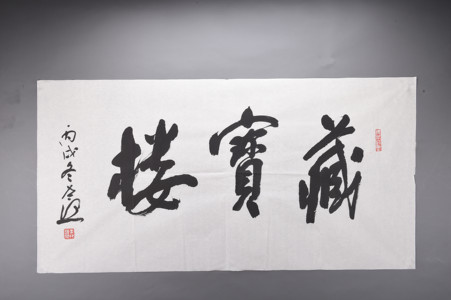 藏寶楼
丙戌冬